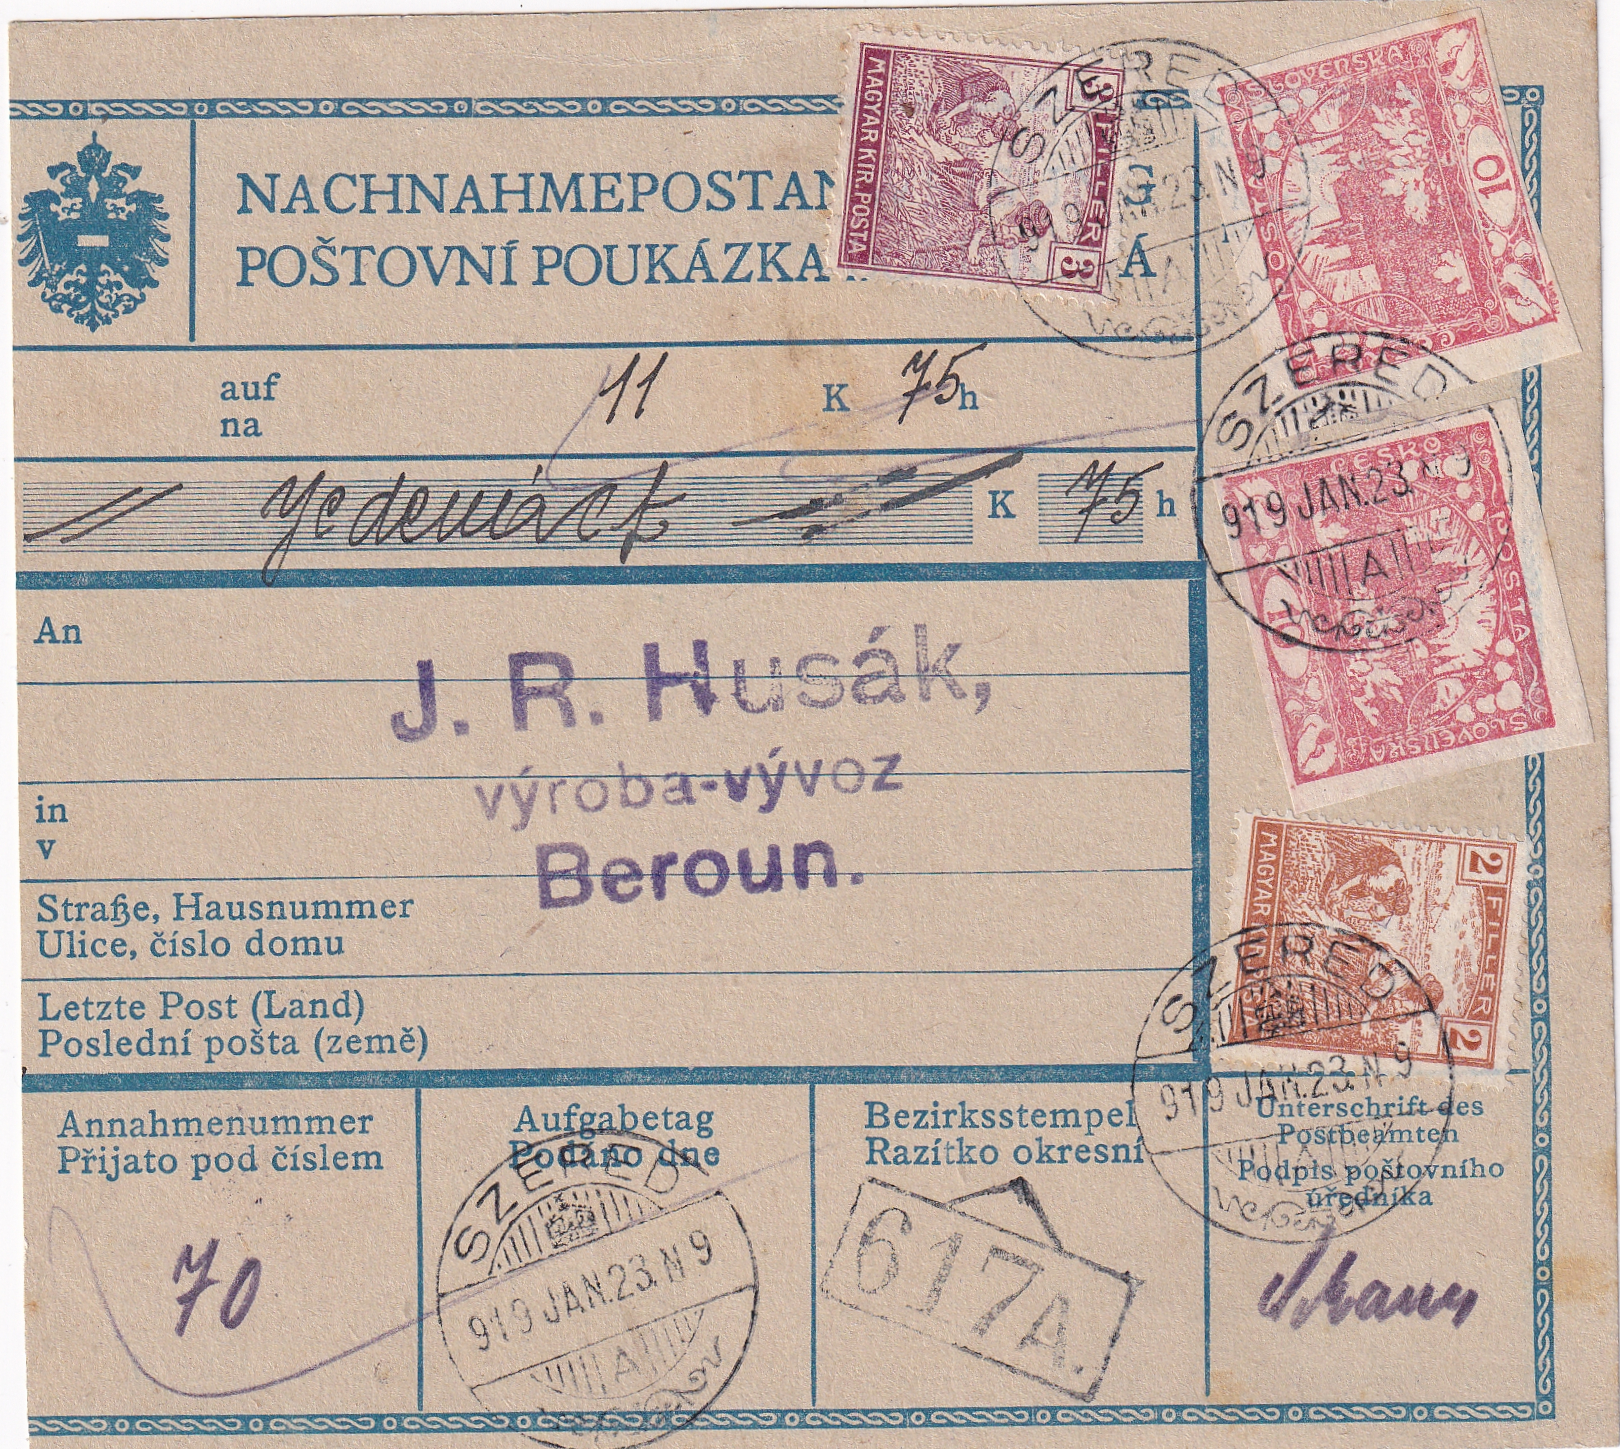 NACHNAHMEPOSTAN G
POŠTOVNÍ POUKÁZKA Á
auf
na
11 K 75 h
Jedenáct K 75 h
An
J. R. Husák,
výroba-vývoz
Beroun.
in
v
Straße, Hausnummer
Ulice, číslo domu
Letzte Post (Land)
Poslední pošta (země)
Annahmenummer
Přijato pod číslem
70
Aufgabetag
Podáno dne
SZERED
919 JAN.23. N 9
A
Bezirksstempel
Razítko okresní
617A.
Unterschrift des
Postbeamten
Podpis poštovního
úředníka
3 FILLER 3
MAGYAR KIR. POSTA
SZERED
919 JAN.23. N 9
A
SLOVENSKÁ
10
POŠTA
SZERED
919 JAN.23. N 9
A
ČESKO
POŠTA
10
SLOVENSKÁ
2 FILLER 2
MAGYAR
SZERED
919 JAN.23. N 9